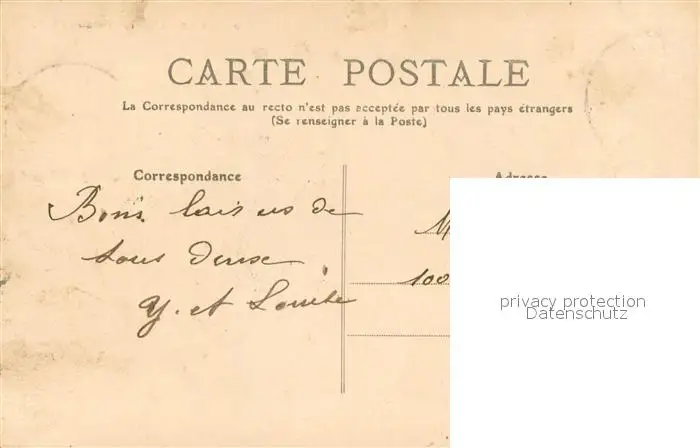 CARTE POSTALE
La Correspondance au recto n'est pas acceptée par tous les pays étrangers
(Se renseigner à la Poste)
Correspondance
Adresse
Bons baisers de
tous deux
M
100
Y. et Louise
privacy protection
Datenschutz